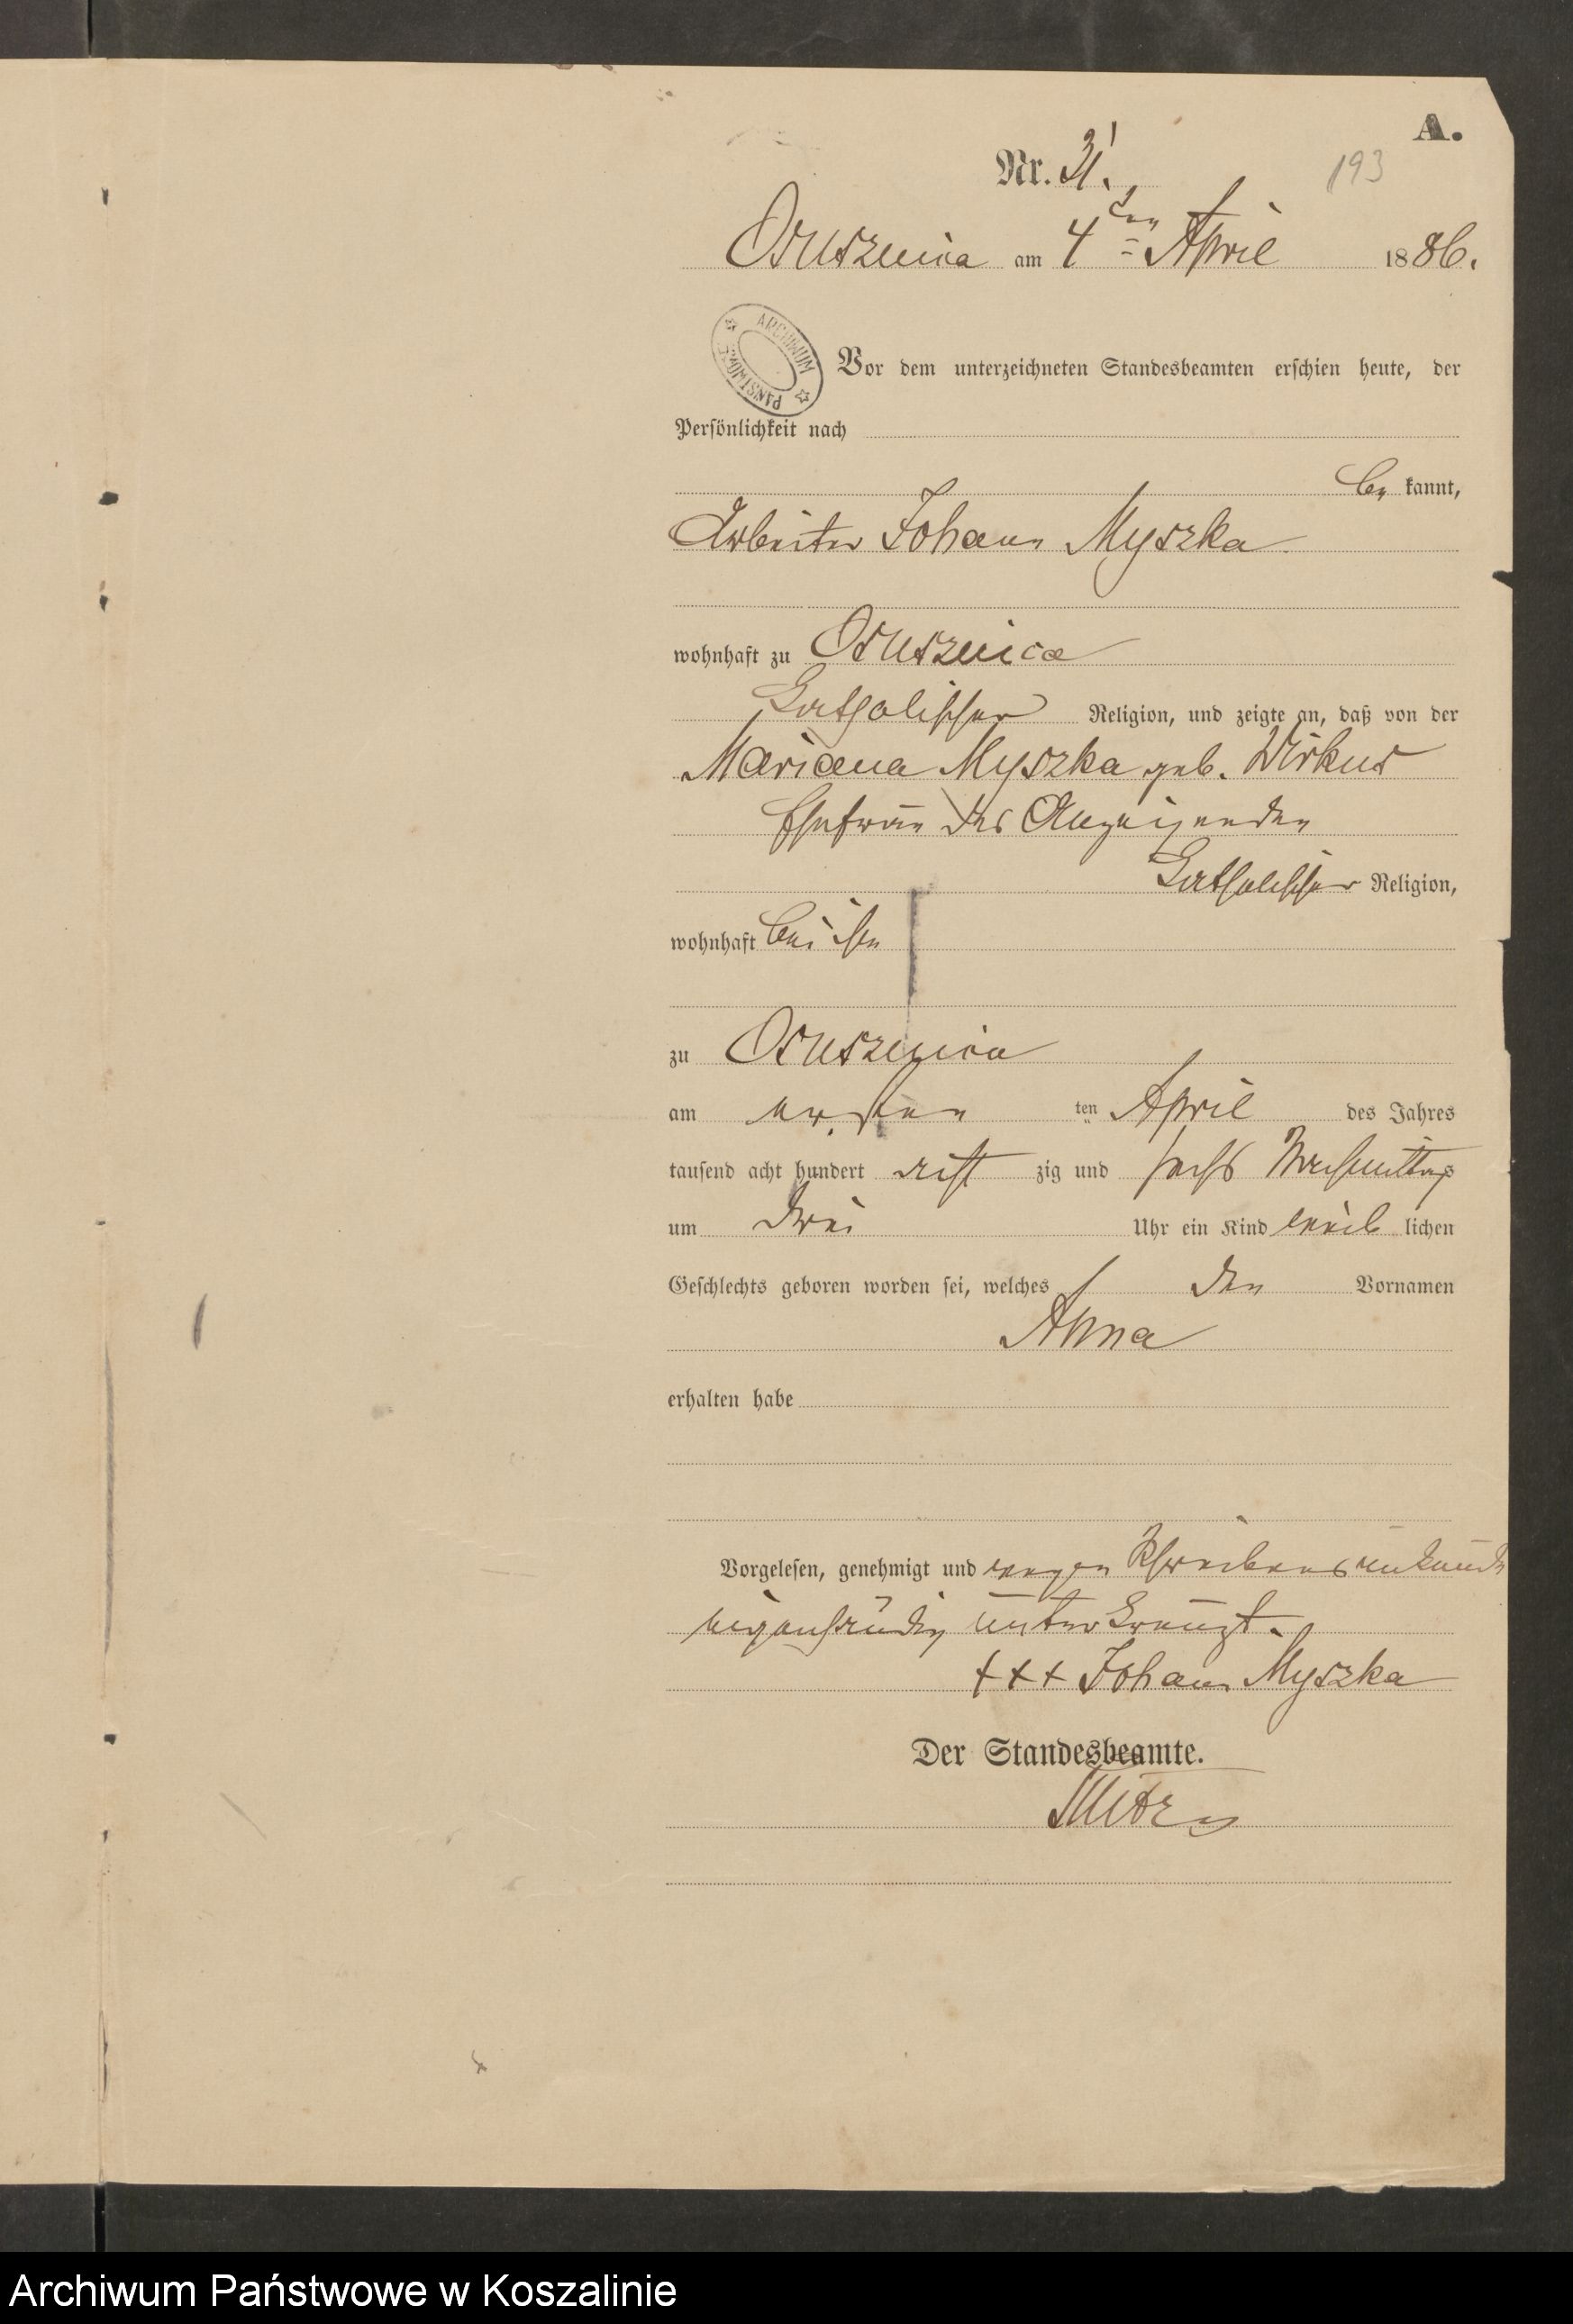 A.
Nr. 31.
193
Osusznica am 4ten April 1886.
ARCHIWUM PAŃSTWOWE
Vor dem unterzeichneten Standesbeamten erschien heute, der
Persönlichkeit nach
be kannt,
Arbeiter Johann Myszka
wohnhaft zu Osusznica
katholischer Religion, und zeigte an, daß von der
Mariana Myszka geb. Wirkus
Ehefrau des Anzeigenden
katholischer Religion,
wohnhaft bei ihm
zu Osusznica
am ersten ten April des Jahres
tausend acht hundert acht zig und sechs Nachmittags
um drei Uhr ein Kind weib lichen
Geschlechts geboren worden sei, welches den Vornamen
Anna
erhalten habe
Vorgelesen, genehmigt und wegen Schreibensunkunde
eigenhändig unterkreuzt.
+++ Johann Myszka
Der Standesbeamte.
Archiwum Państwowe w Koszalinie